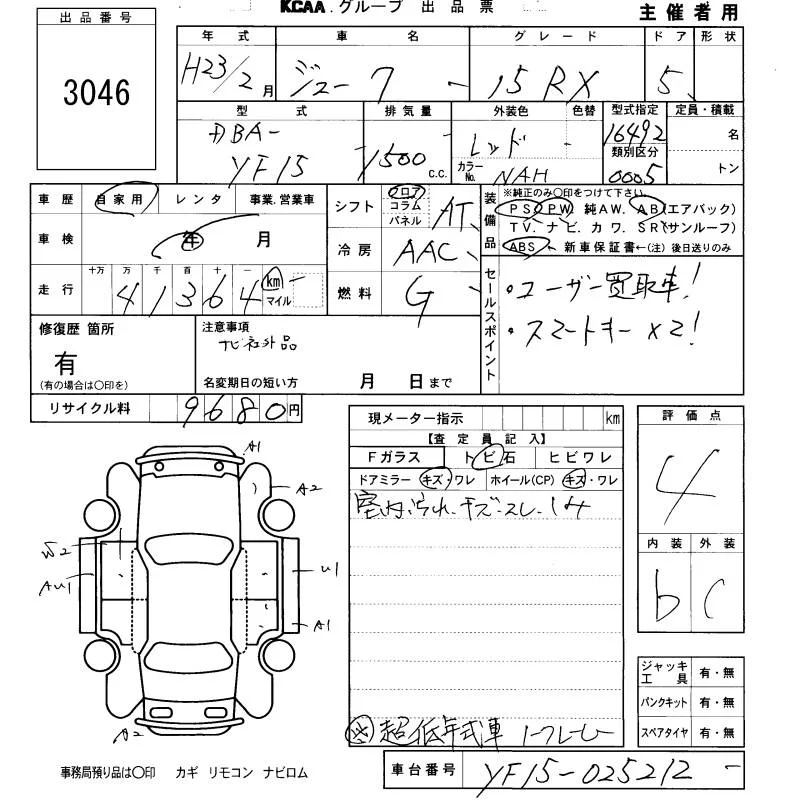 KCAA.グループ 出品票
主催者用
出品番号
3046
年式 車名 グレード ドア 形状
H23/2月 ジューク 15RX 5
型式 排気量 外装色 色替 型式指定 定員・積載
DBA- YF15 1500 c.c. レッド カラーNo. NAH 16492 名
類別区分
0005 トン
車歴 自家用 レンタ 事業.営業車
車検 年 月
走行 十万 万 千 百 十 一
41364 km マイル
シフト フロア コラム パネル AT
冷房 AAC
燃料 G
装備品 ※純正のみ〇印をつけて下さい
PS PW 純AW. AB(エアバック)
TV. ナビ. カワ. SR(サンルーフ)
ABS 新車保証書←(注)後日送りのみ
セールスポイント
・ユーザー買取車!
・スマートキー×2!
修復歴 箇所
有
(有の場合は〇印を)
注意事項
ナビ社外品
名変期日の短い方 月 日まで
リサイクル料 9680円
現メーター指示 km
【査定員記入】
Fガラス トビ石 ヒビワレ
ドアミラー キズ・ワレ ホイール(CP) キズ・ワレ
室内汚れ.キズ・スレ.シミ
超低年式車
評価点
4
内装 外装
b C
A1
A2
W2
AU1
U1
A1
A2
ジャッキ工具 有・無
パンクキット 有・無
スペアタイヤ 有・無
事務局預り品は〇印 カギ リモコン ナビロム
車台番号 YF15-025212